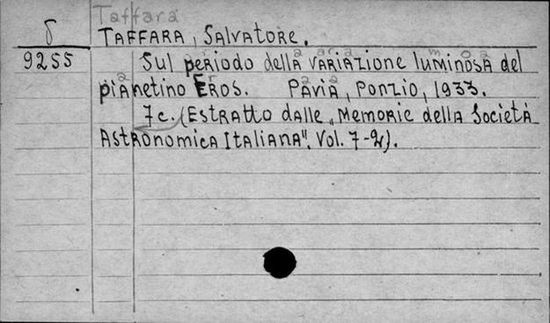 Taffara
δ
TAFFARA, SALVATORE.
9255
Sul periodo della variazione luminosa del
pianetino EROS. Pavia, Ponzio, 1933.
7c. (Estratto dalle „Memorie della Società
Astronomica Italiana”, Vol. 7-2).